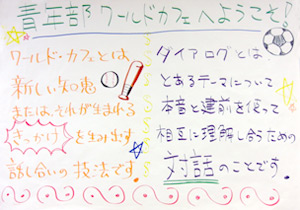 青年部ワールドカフェへようこそ!
ワールド・カフェとは
新しい知恵
または、それが生まれる
きっかけを生み出す
話し合いの技法です。
ダイアログとは
とあるテーマについて
本音と建前を使って
相互に理解し合うための
対話のことです。